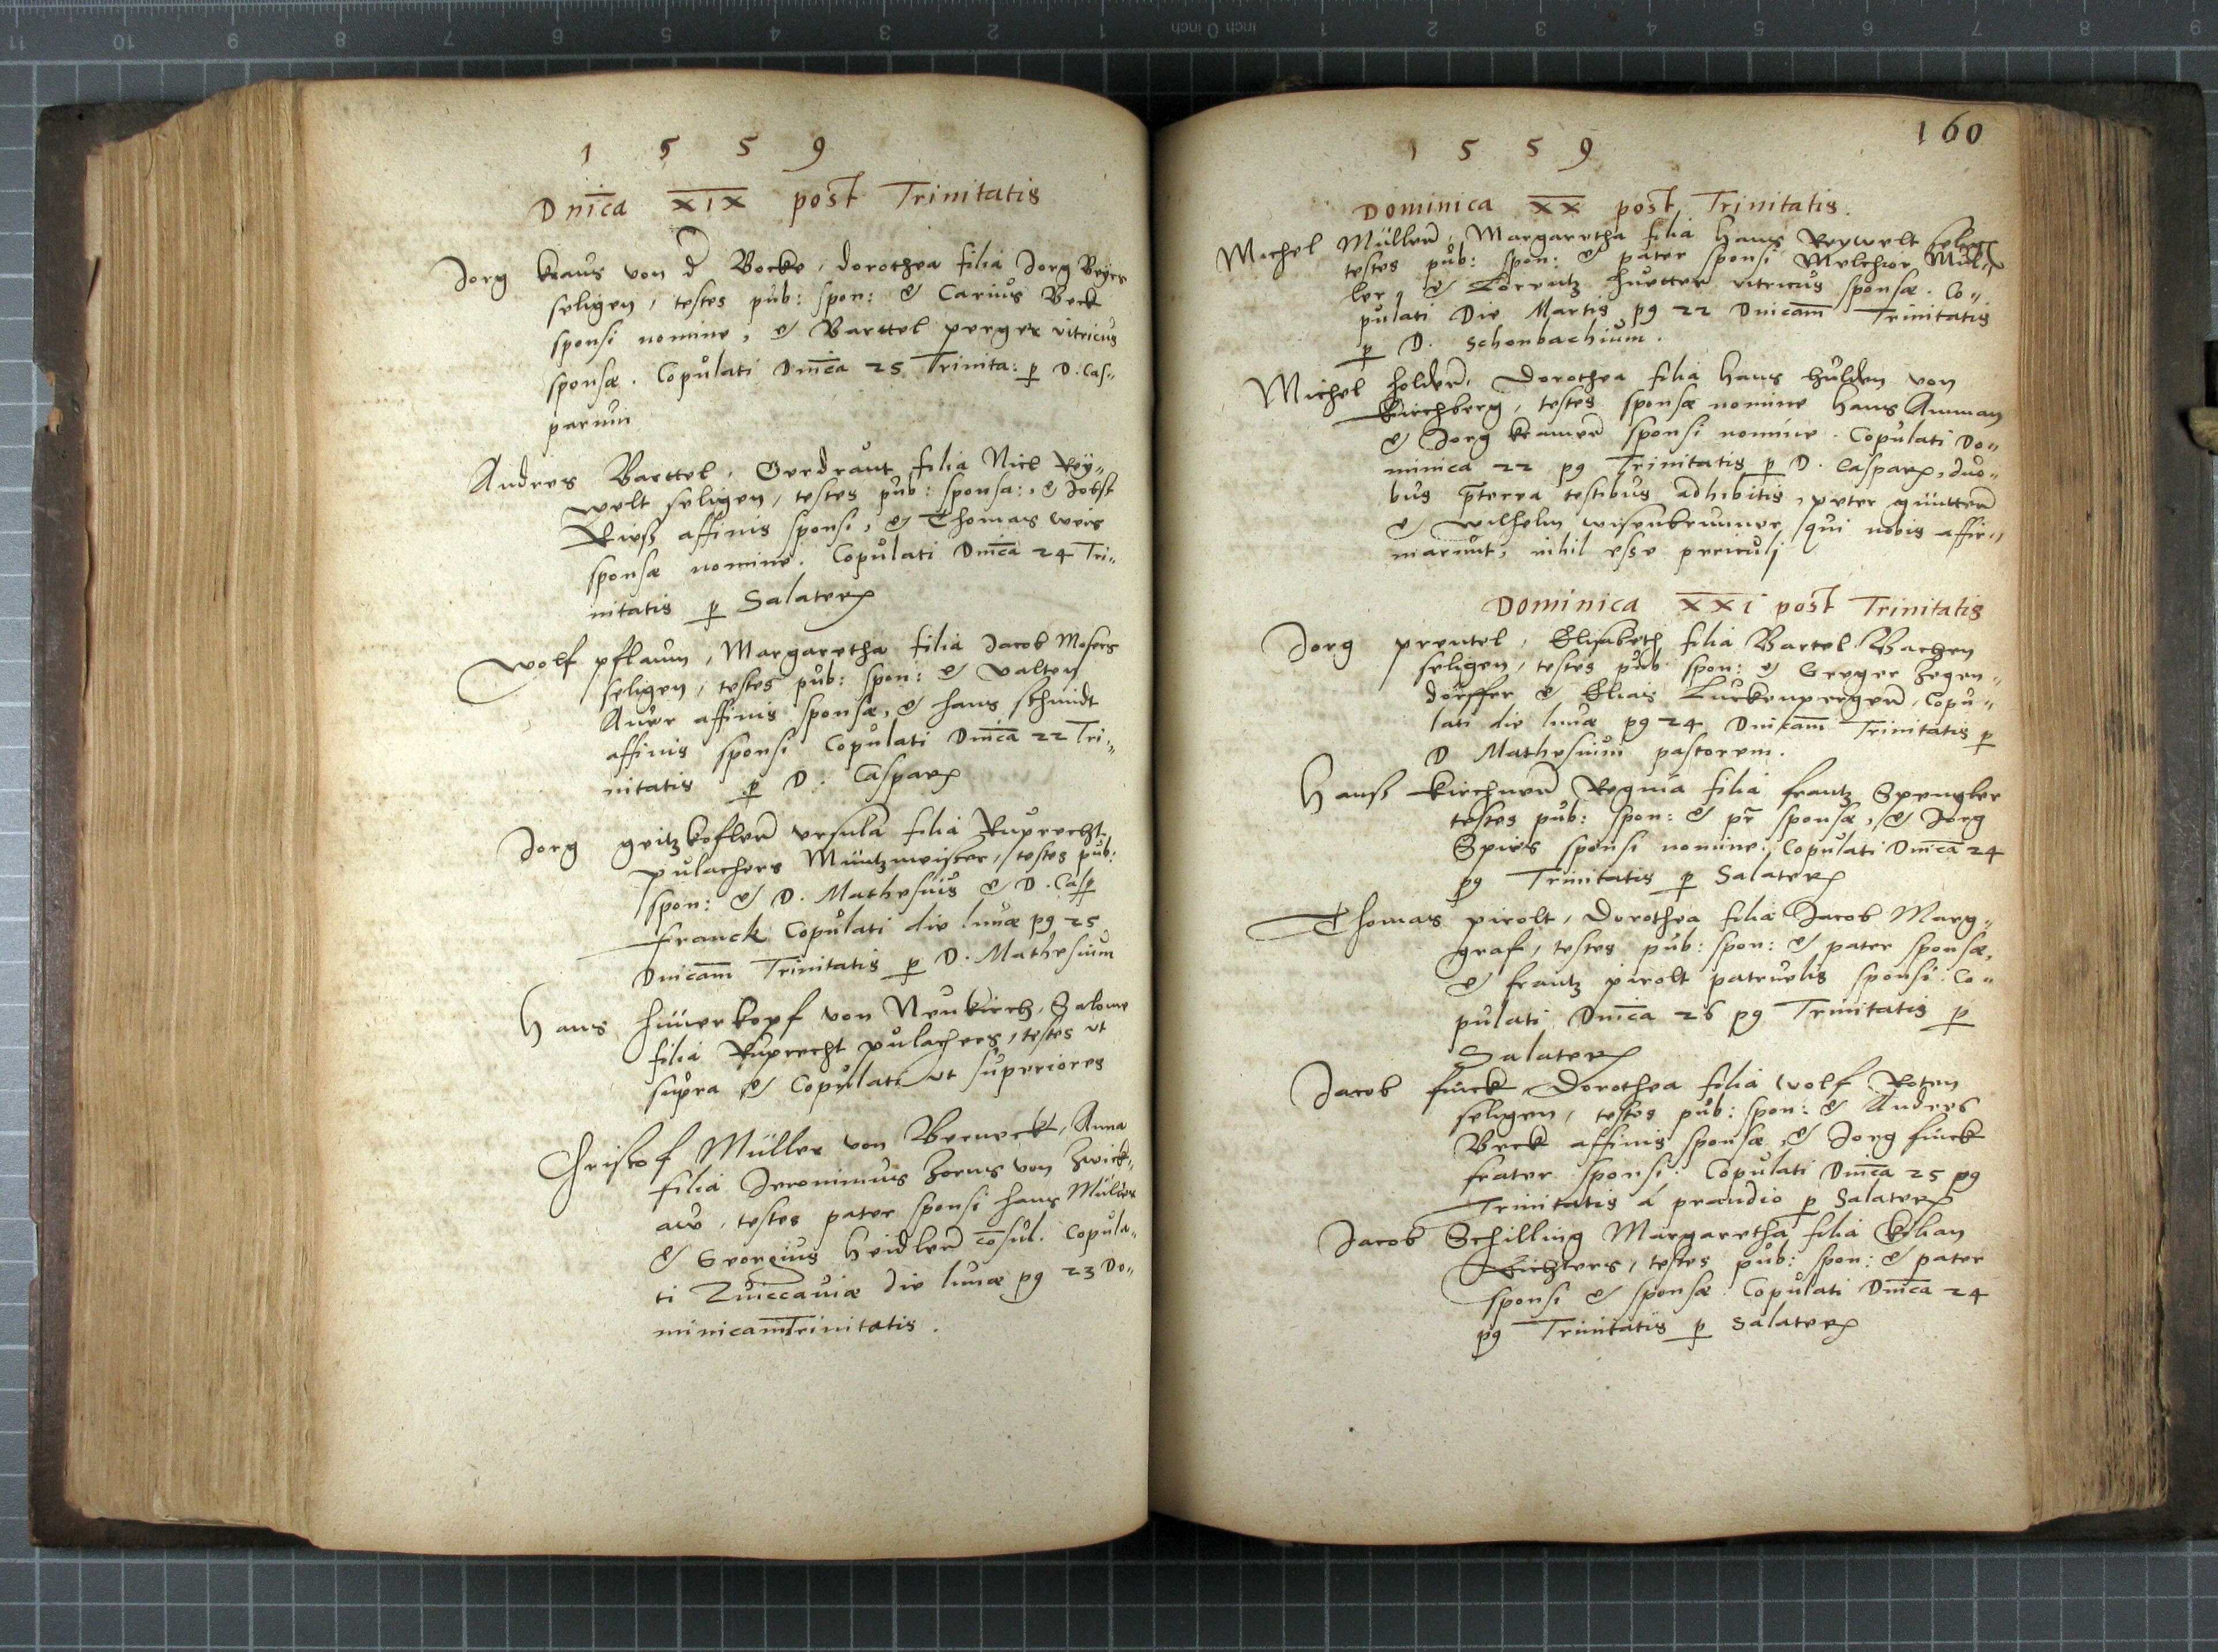 1 5 5 9
Dnica XIX post Trinitatis
Jorg Kraus von d Bocke, dorothea filia Jorg Beyers
seligen, testes pub: spon: & Carius Beck
sponsi nomine, & Barttel perger vitricus
sponsæ. Copulati Dnica 25 Trinita: p D. Cas"
parum
Andres Barttel, Gerdraut filia Nicl Rey"
welt seligen, testes pub: sponsa:, & Jobst
Rieß affinis sponsi, & Thomas weis
sponsæ nomine. Copulati Dnica 24 Tri"
nitatis p Salater
Wolf pflaum, Margaretha filia Jacob Mosers
seligen, testes pub: spon: & Valten
Auer affinis sponsæ, & hans schmidt
affinis sponsi Copulati Dnica 22 Tri"
nitatis p D. Caspar
Jorg geitzkofler Ursula filia Ruprecht
pulachers Müntzmeister, testes pub:
spon: & D. Mathesius & D. Casp
Franck Copulati die lunæ pg 25
Dnicam Trinitatis p D. Mathesium
Hans hünerkopf von Neukirch, Salome
filia Ruprecht pulachers, testes ut
supra & Copulati ut superiores
Christof Müller von Berneck, Anna
filia Jeronimus Zorns von Zwick"
aw, testes pater sponsi hans Müller
& Georgius heidler cosul. Copula"
ti Zuiccauiæ die lunæ pg 23 Do"
minicam Trinitatis.
160
1 5 5 9
Dominica XX post Trinitatis.
Michel Müller, Margaretha filia hans Reywelt
testes pub: spon: & pater sponsi Melchior Mül"
ler, & Lorentz huetter vitricus sponsæ. Co"
pulati Die Martis pg 22 Dnicam Trinitatis
p D. Schonbachium.
Michel holder, Dorothea filia hans hulden von
Kirchberg, testes sponsæ nomine hans Amman
& Jorg Kramer sponsi nomine. Copulati Do"
minica 22 pg Trinitatis p D. Caspar, duo"
bus pterea testibus adhibitis, peter günter
& wilhelm wisenbrunner qui nobis affir"
marunt, nihil esse periculj
Dominica XXI post Trinitatis
Jorg prentel, Elisabeth filia Bartel Bachen
seligen, testes pub: spon: & Greger Zegen"
dorffer & Elias Luckenperger, Copu"
lati die lunæ pg 24 Dnicam Trinitatis p
D Mathesium pastorem.
Hanß Kirchner Regina filia frantz Spengler
testes pub: spon: & pr sponsæ, & Jorg
Spies sponsi nomine. Copulati Dnica 24
pg Trinitatis p Salater
Thomas pirolt, Dorothea filia Jacob Marg"
graf, testes pub: spon: & pater sponsæ,
& frantz pirolt patruelis sponsi. Co"
pulati Dnica 26 pg Trinitatis p
Salater
Jacob finck Dorothea filia Wolf Roten
seligen, testes pub: spon: & Andres
Beck affinis sponsæ, & Jorg finck
frater sponsi. Copulati Dnica 25 pg
Trinitatis a prandio p Salater
Jacob Schilling Margaretha filia Kilian
Richters, testes pub: spon: & pater
sponsi & sponsæ. Copulati Dnica 24
pg Trinitatis p Salater